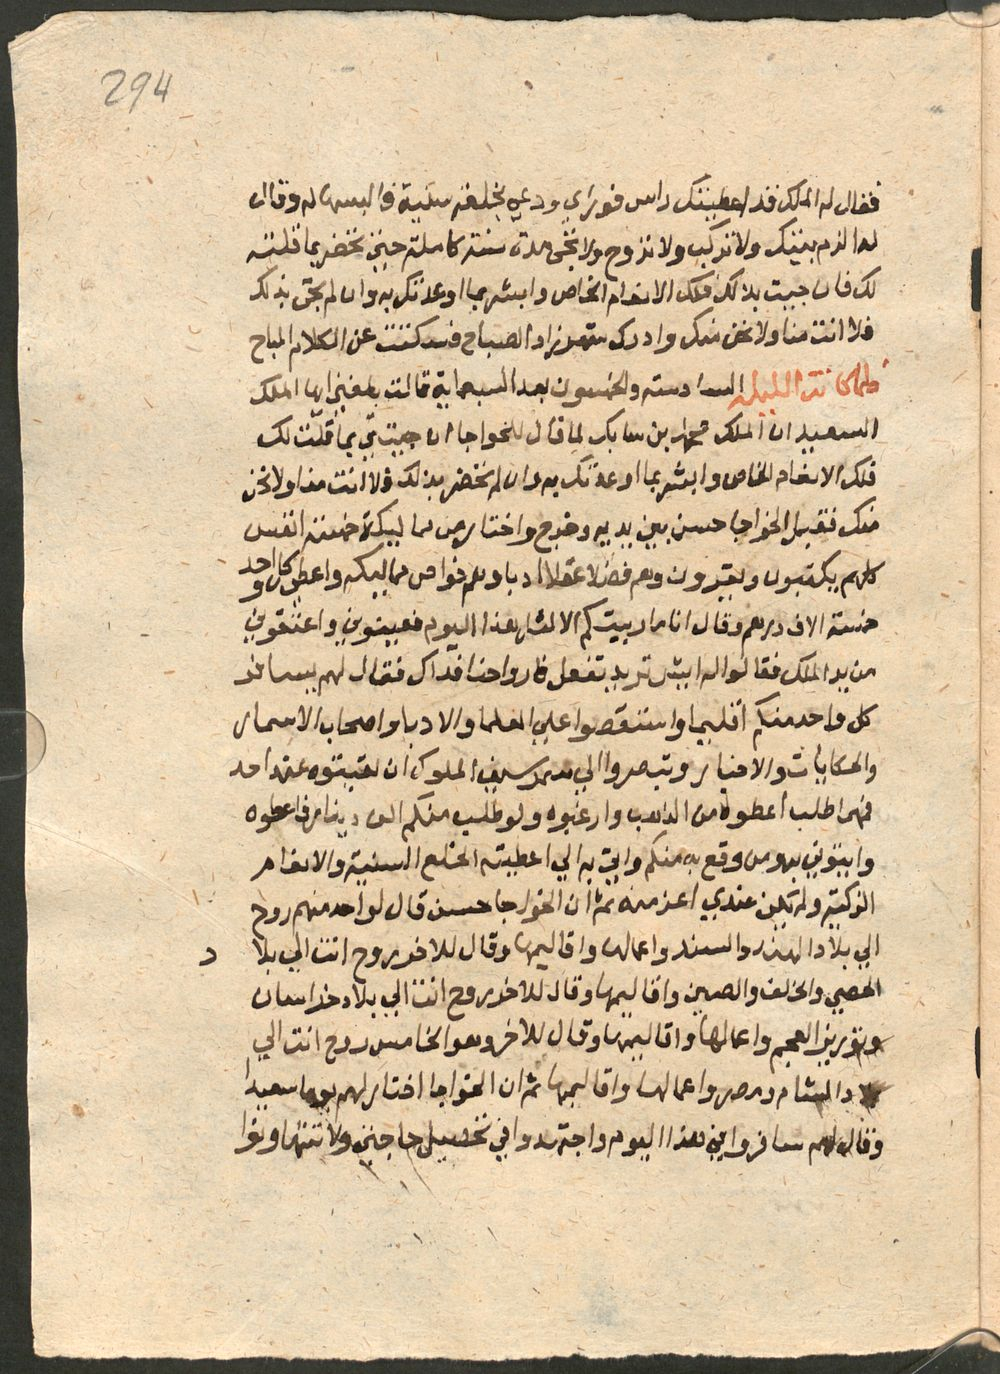 294
فقال له الملك قد اعطيتك راس فورتي ودعي بخلعة سنية فالبسها له وقال
له الزم بيتك ولا تركب ولا تروح ولا تجي مدة سنة كاملة حتي تحضر بما قلته
لك فان جيت بذلك فلك الانعام الخاص وابشر بما اوعدتك به وان لم تجي بذلك
فلا انت منا ولا نحن منك وادرك شهرزاد الصباح فسكتت عن الكلام المباح
فلما كانت الليلة السادسة والخمسون بعد السبعماية قالت بلغني ايها الملك
السعيد ان الملك محمد بن سبايك لما قال للخواجا ان جيتني بما قلت لك
فلك الانعام الخاص وابشر بما اوعدتك به وان لم تحضر بذلك فلا انت منا ولا نحن
منك فقبل الخواجا حسن بين يديه وخرج واختار من مماليكه خمسة انفس
كلهم يكتبون ويقرون وهم فضلا عقلا ادبا وهم خواص مماليكه واعطي كل واحد
خمسة الاف درهم وقال انا ما ربيتكم الا لمثل هذا اليوم فعينوني واعتقوني
من يد الملك فقالوا له ايش تريد تفعل فارواحنا فداك فقال لهم يسافر
كل واحد منكم اقليما واستنقصوا علي العلما والادبا واصحاب الاسمار
والحكايات والاخبار وتبصروا الي سمر سيف الملوك ان لقيتوه عند احد
فمهما طلب اعطوه من الذهب وارغبوه ولو طلب منكم الف دينار فاعطوه
وايتوني به ومن وقع به منكم واتي به الي اعطيته الخلع السنية والانعام
الزكية ولم يكن عندي اعز منه ثم ان الخواجا حسن قال لواحد منهم روح
الي بلاد الهند والسند واعمالها واقاليمها وقال للاخر روح انت الي بلاد
الصين والخلف والصين واقاليمها وقال للاخر روح انت الي بلاد خراسان
وتوريز العجم واعمالها واقاليمها وقال للاخر وهو الخامس روح انت الي
بلاد الشام ومصر واعمالها واقاليمها ثم ان الخواجا اختار لهم يوما سعيدا
وقال لهم سافروا في هذا اليوم واجتهدوا في تحصيل حاجتي ولا تتهاونوا